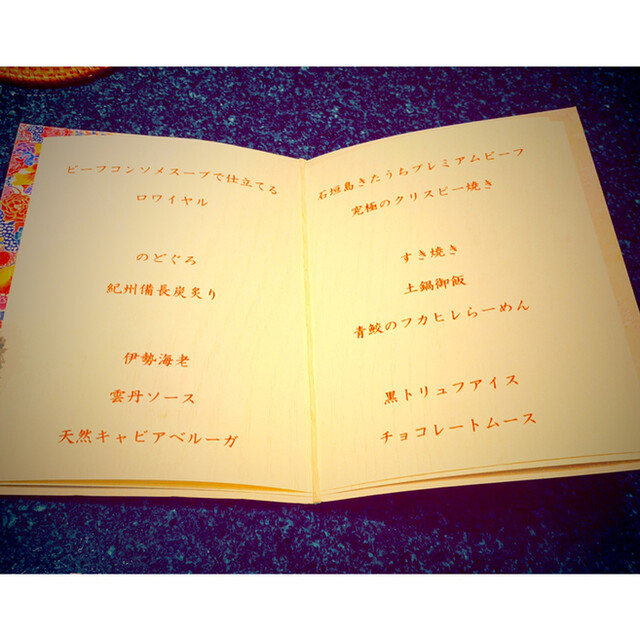 ビーフコンソメスープで仕立てる
ロワイヤル
のどぐろ
紀州備長炭炙り
伊勢海老
雲丹ソース
天然キャビアベルーガ
石垣島きたうちプレミアムビーフ
究極のクリスピー焼き
すき焼き
土鍋御飯
青鮫のフカヒレらーめん
黒トリュフアイス
チョコレートムース